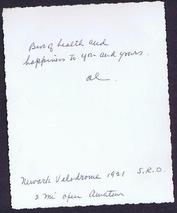 Best of health and
happiness to you and yours.
al
Newark Velodrome 1921 S.R.O.
2 mi open Amateur